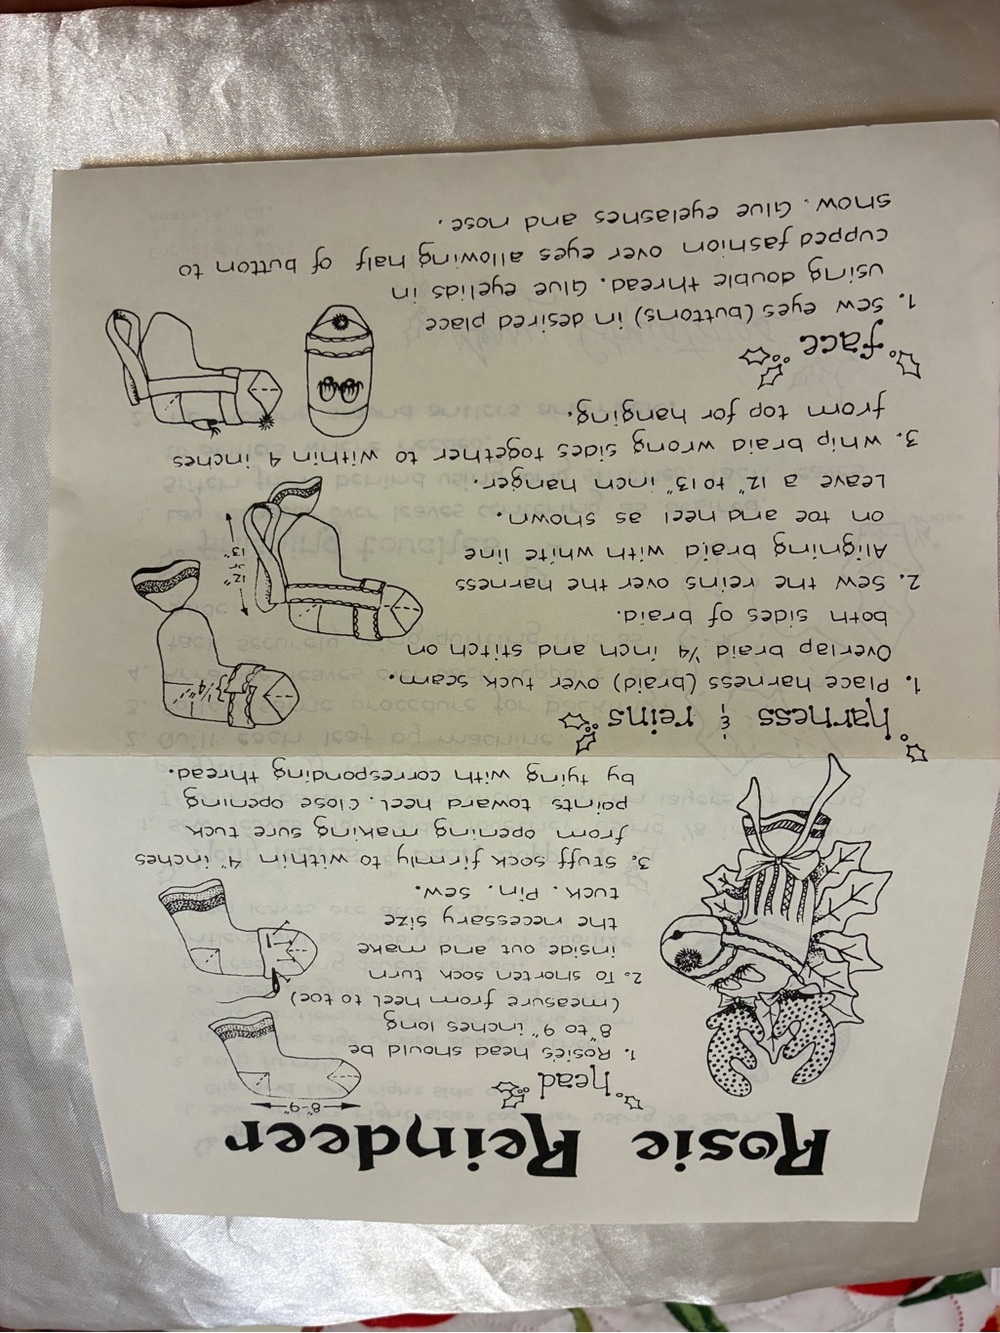 Rosie Reindeer
head
8"-9"
1. Rosie's head should be
8" to 9" inches long
(measure from heel to toe)
2. To shorten sock turn
inside out and make
the necessary size
tuck. Pin. Sew.
3. Stuff sock firmly to within 4" inches
from opening making sure tuck
points toward heel. Close opening
by tying with corresponding thread.
harness & reins
1. Place harness (braid) over tuck seam.
Overlap braid ¼ inch and stitch on
both sides of braid.
1/4"
2. Sew the reins over the harness
Aligning braid with white line
on toe and heel as shown.
Leave a 12" to 13" inch hanger.
12" or 13"
3. Whip braid wrong sides together to within 4 inches
from top for hanging.
face
1. Sew eyes (buttons) in desired place
using double thread. Glue eyelids in
cupped fashion over eyes allowing half of button to
show. Glue eyelashes and nose.